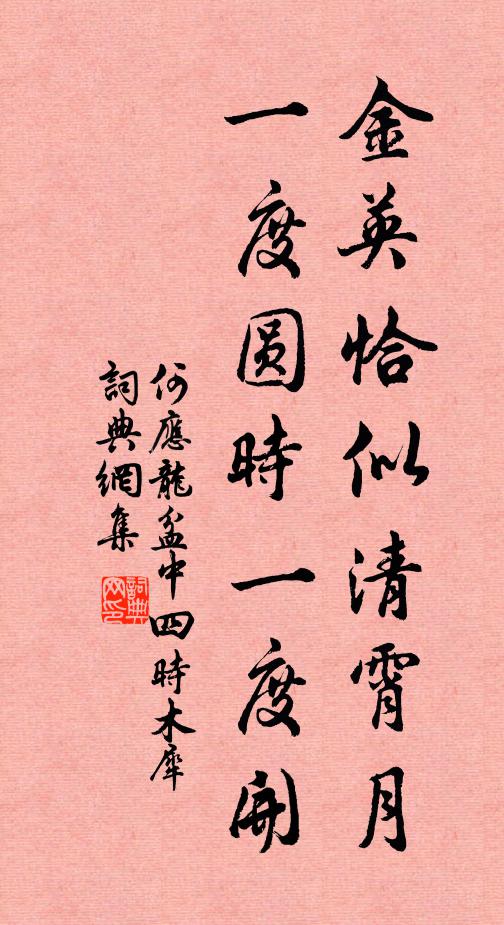 金英恰似清霄月
一度圆時一度開
何應龍盆中四時木犀
詞典網集
詞典网印